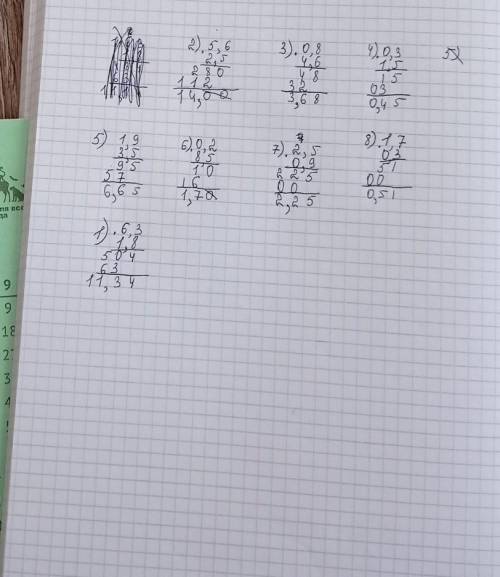 2) . 5,6
2,5
280
112
14,00
3) . 0,8
4,6
48
32
3,68
4) . 0,3
1.5
15
03
0,45
5)
5) 1,9
3,5
95
57
6,65
6) . 0,2
8,5
10
16
1,70
7) . 2,5
0,9
225
00
2,25
8) . 1,7
0,3
51
00
0,51
1) . 6,3
1,8
504
63
11,34
9
9
18
2
3